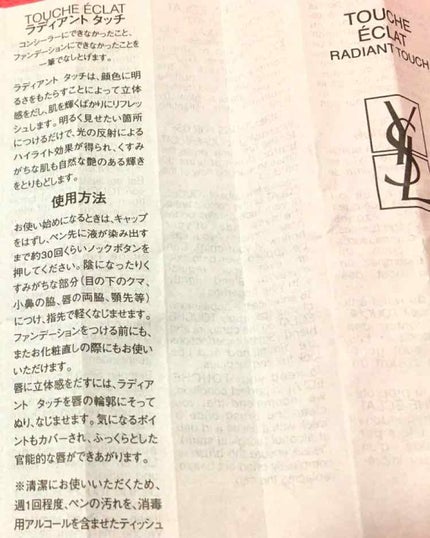 TOUCHE ÉCLAT
ラディアント タッチ
コンシーラーにできなかったこと、
ファンデーションにできなかったことを
一筆でなしとげます。
ラディアント タッチは、顔色に明
るさをもたらすことによって立体
感をだし、肌を輝くばかりにリフレッ
シュします。明るく見せたい箇所
につけるだけで、光の反射による
ハイライト効果が得られ、くすみ
がちな肌も自然な艶のある輝き
をとりもどします。
使用方法
お使い始めになるときは、キャップ
をはずし、ペン先に液が染み出す
まで約30回くらいノックボタンを
押してください。陰になったりく
すみがちな部分(目の下のクマ、
小鼻の脇、唇の両脇、顎先等)
につけ、指先で軽くなじませます。
ファンデーションをつける前にも、
またお化粧直しの際にもお使い
いただけます。
唇に立体感をだすには、ラディア
ント タッチを唇の輪郭にそって
ぬり、なじませます。気になるポイ
ントもカバーされ、ふっくらとした
官能的な唇ができあがります。
※清潔にお使いいただくため、
週1回程度、ペンの汚れを、消毒
用アルコールを含ませたティッシュ
TOUCHE
ÉCLAT
RADIANT TOUCH
YSL